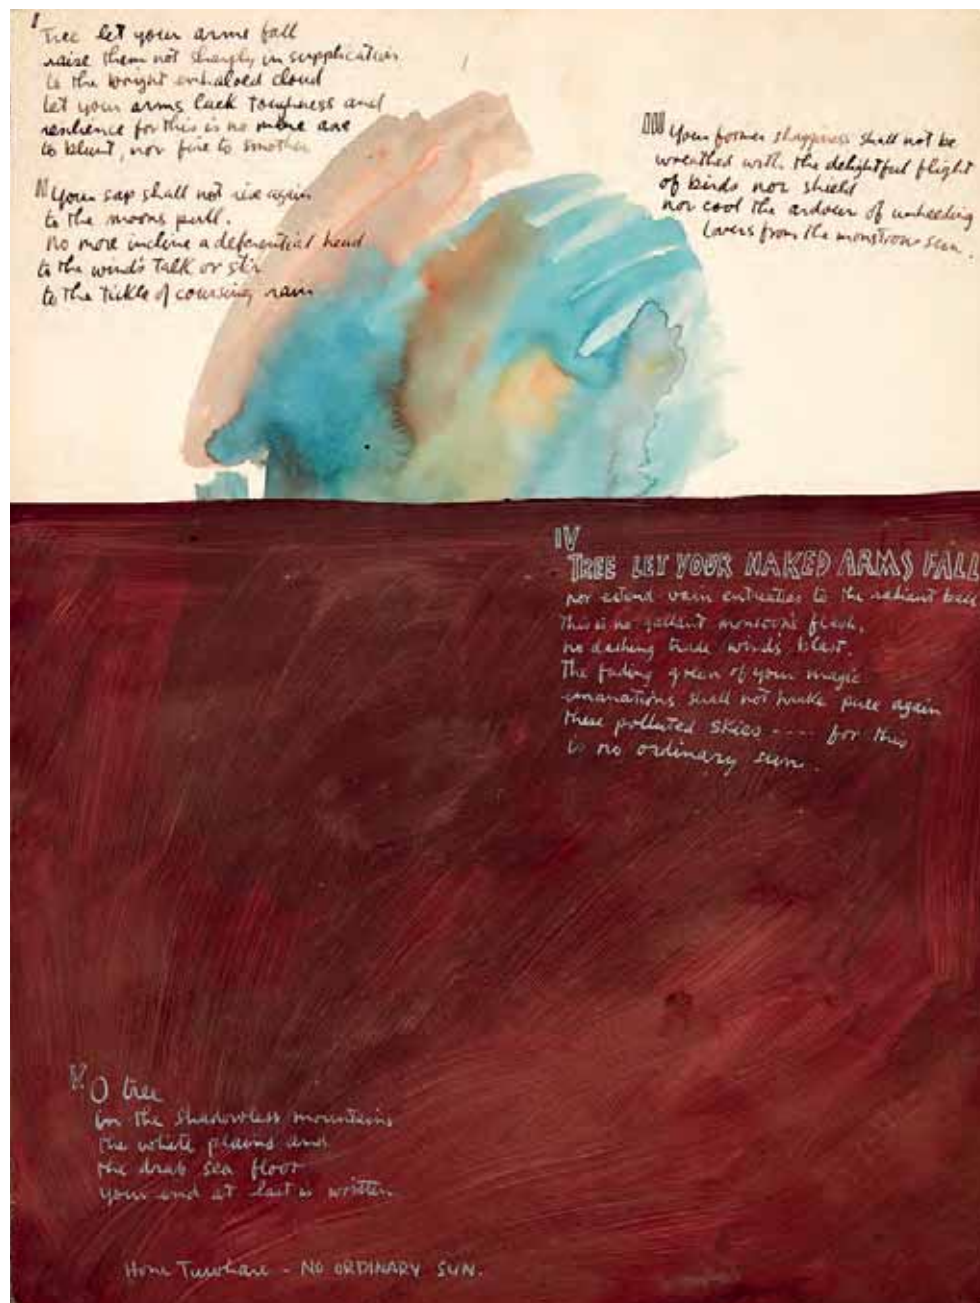 I
Tree let your arms fall
raise them not sharply in supplication
to the bright enhaloed cloud
let your arms lack toughness and
resilience for this is no mere axe
to blunt, nor fire to smother
II Your sap shall not rise again
to the moons pull.
no more incline a deferential head
to the wind's talk or stir
to the tickle of coursing rain
III Your former shagginess shall not be
wreathed with the delightful flight
of birds nor shield
nor cool the ardour of unheeding
lovers from the monstrous sun.
IV
TREE LET YOUR NAKED ARMS FALL
nor extend vain entreaties to the radiant ball
This is no gallant monsoon's flash,
no dashing trade wind's blast.
The fading green of your magic
emanations shall not make pure again
these polluted skies ---- for this
is no ordinary sun.
V. O tree
in the shadowless mountains
the white plains and
the drab sea floor
your end at last is written
Hone Tuwhare - NO ORDINARY SUN.